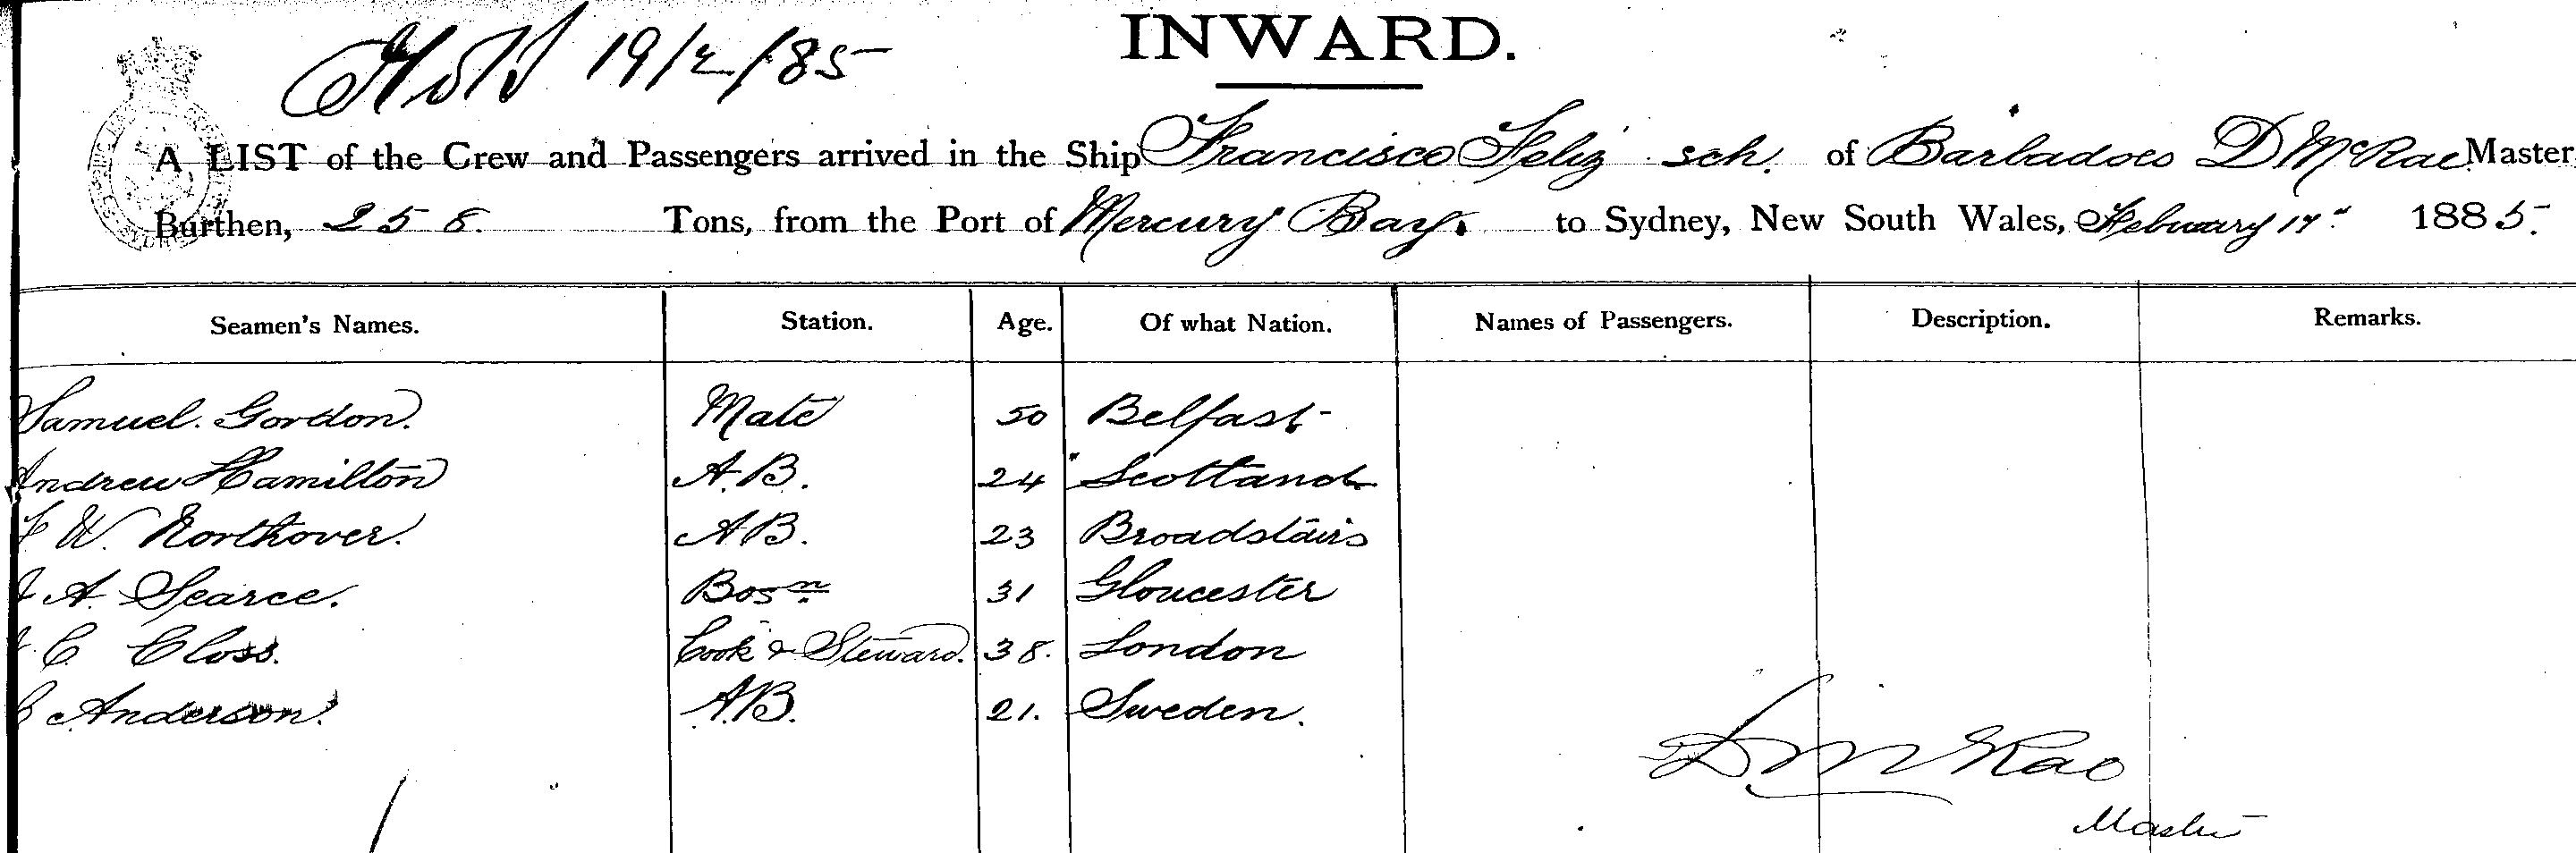 INWARD.
19/2/85
A LIST of the Crew and Passengers arrived in the Ship Francisco Feliz sch. of Barbadoes D McRae Master,
Burthen, 258. Tons, from the Port of Mercury Bay. to Sydney, New South Wales, Febuary 17" 1885.
Seamen's Names. Station. Age. Of what Nation. Names of Passengers. Description. Remarks.
Samuel. Gordon. Mate 50 Belfast
Andrew Hamilton A.B. 24 Scotland
W. Northover. AB. 23 Broadstairs
A. Searce. Bosn 31 Gloucester
C Closs. Cook & Steward. 38. London
Anderson. A.B. 21. Sweden.
D McRae
Master